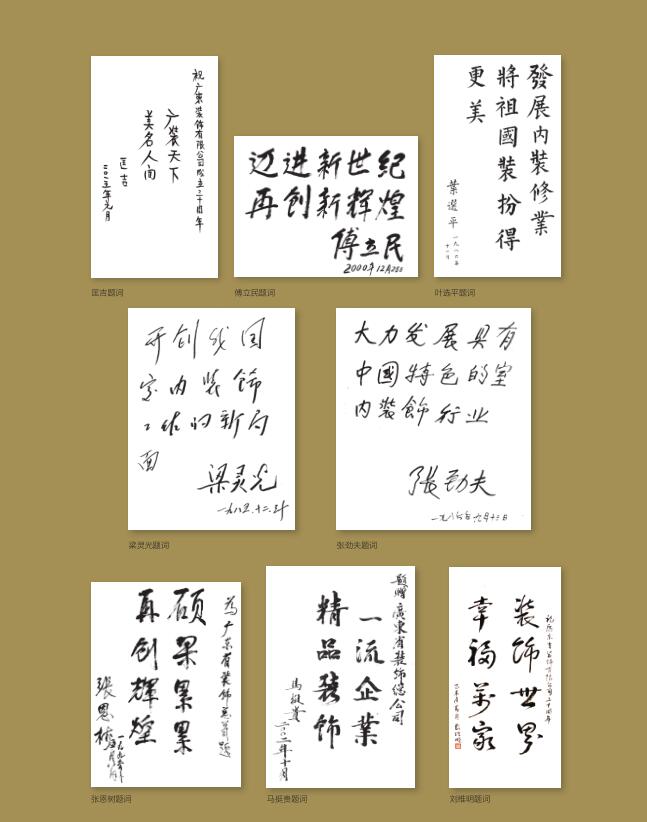 祝广东装饰有限公司成立二十周年
广装天下
美名人间
匡吉
匡吉题词
迈进新世纪
再创新辉煌
傅立民
2000年12月28日
傅立民题词
發展内裝修業
將祖國裝扮得
更美
葉選平
一九八六年
十一月
叶选平题词
开创我国
室内装飾
工作的新局
面
梁灵光
一九八五.十二.
梁灵光题词
大力发展具有
中國特色的室
内裝飾行业
張劲夫
一九八六年九月十三日
张劲夫题词
为广东省装饰总公司题
硕果累累
再创輝煌
張恩树
一九九五年
张恩树题词
题赠廣東省装飾總公司
一流企業
精品装饰
馬挺貴
二〇〇二年十月
马挺贵题词
装饰世界
幸福萬家
刘维明题词